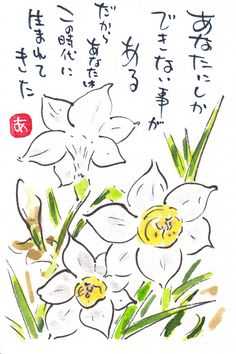 あなたにしか
できない事が
ある
だから
あなたは
この時代に
生まれて
きた
あ